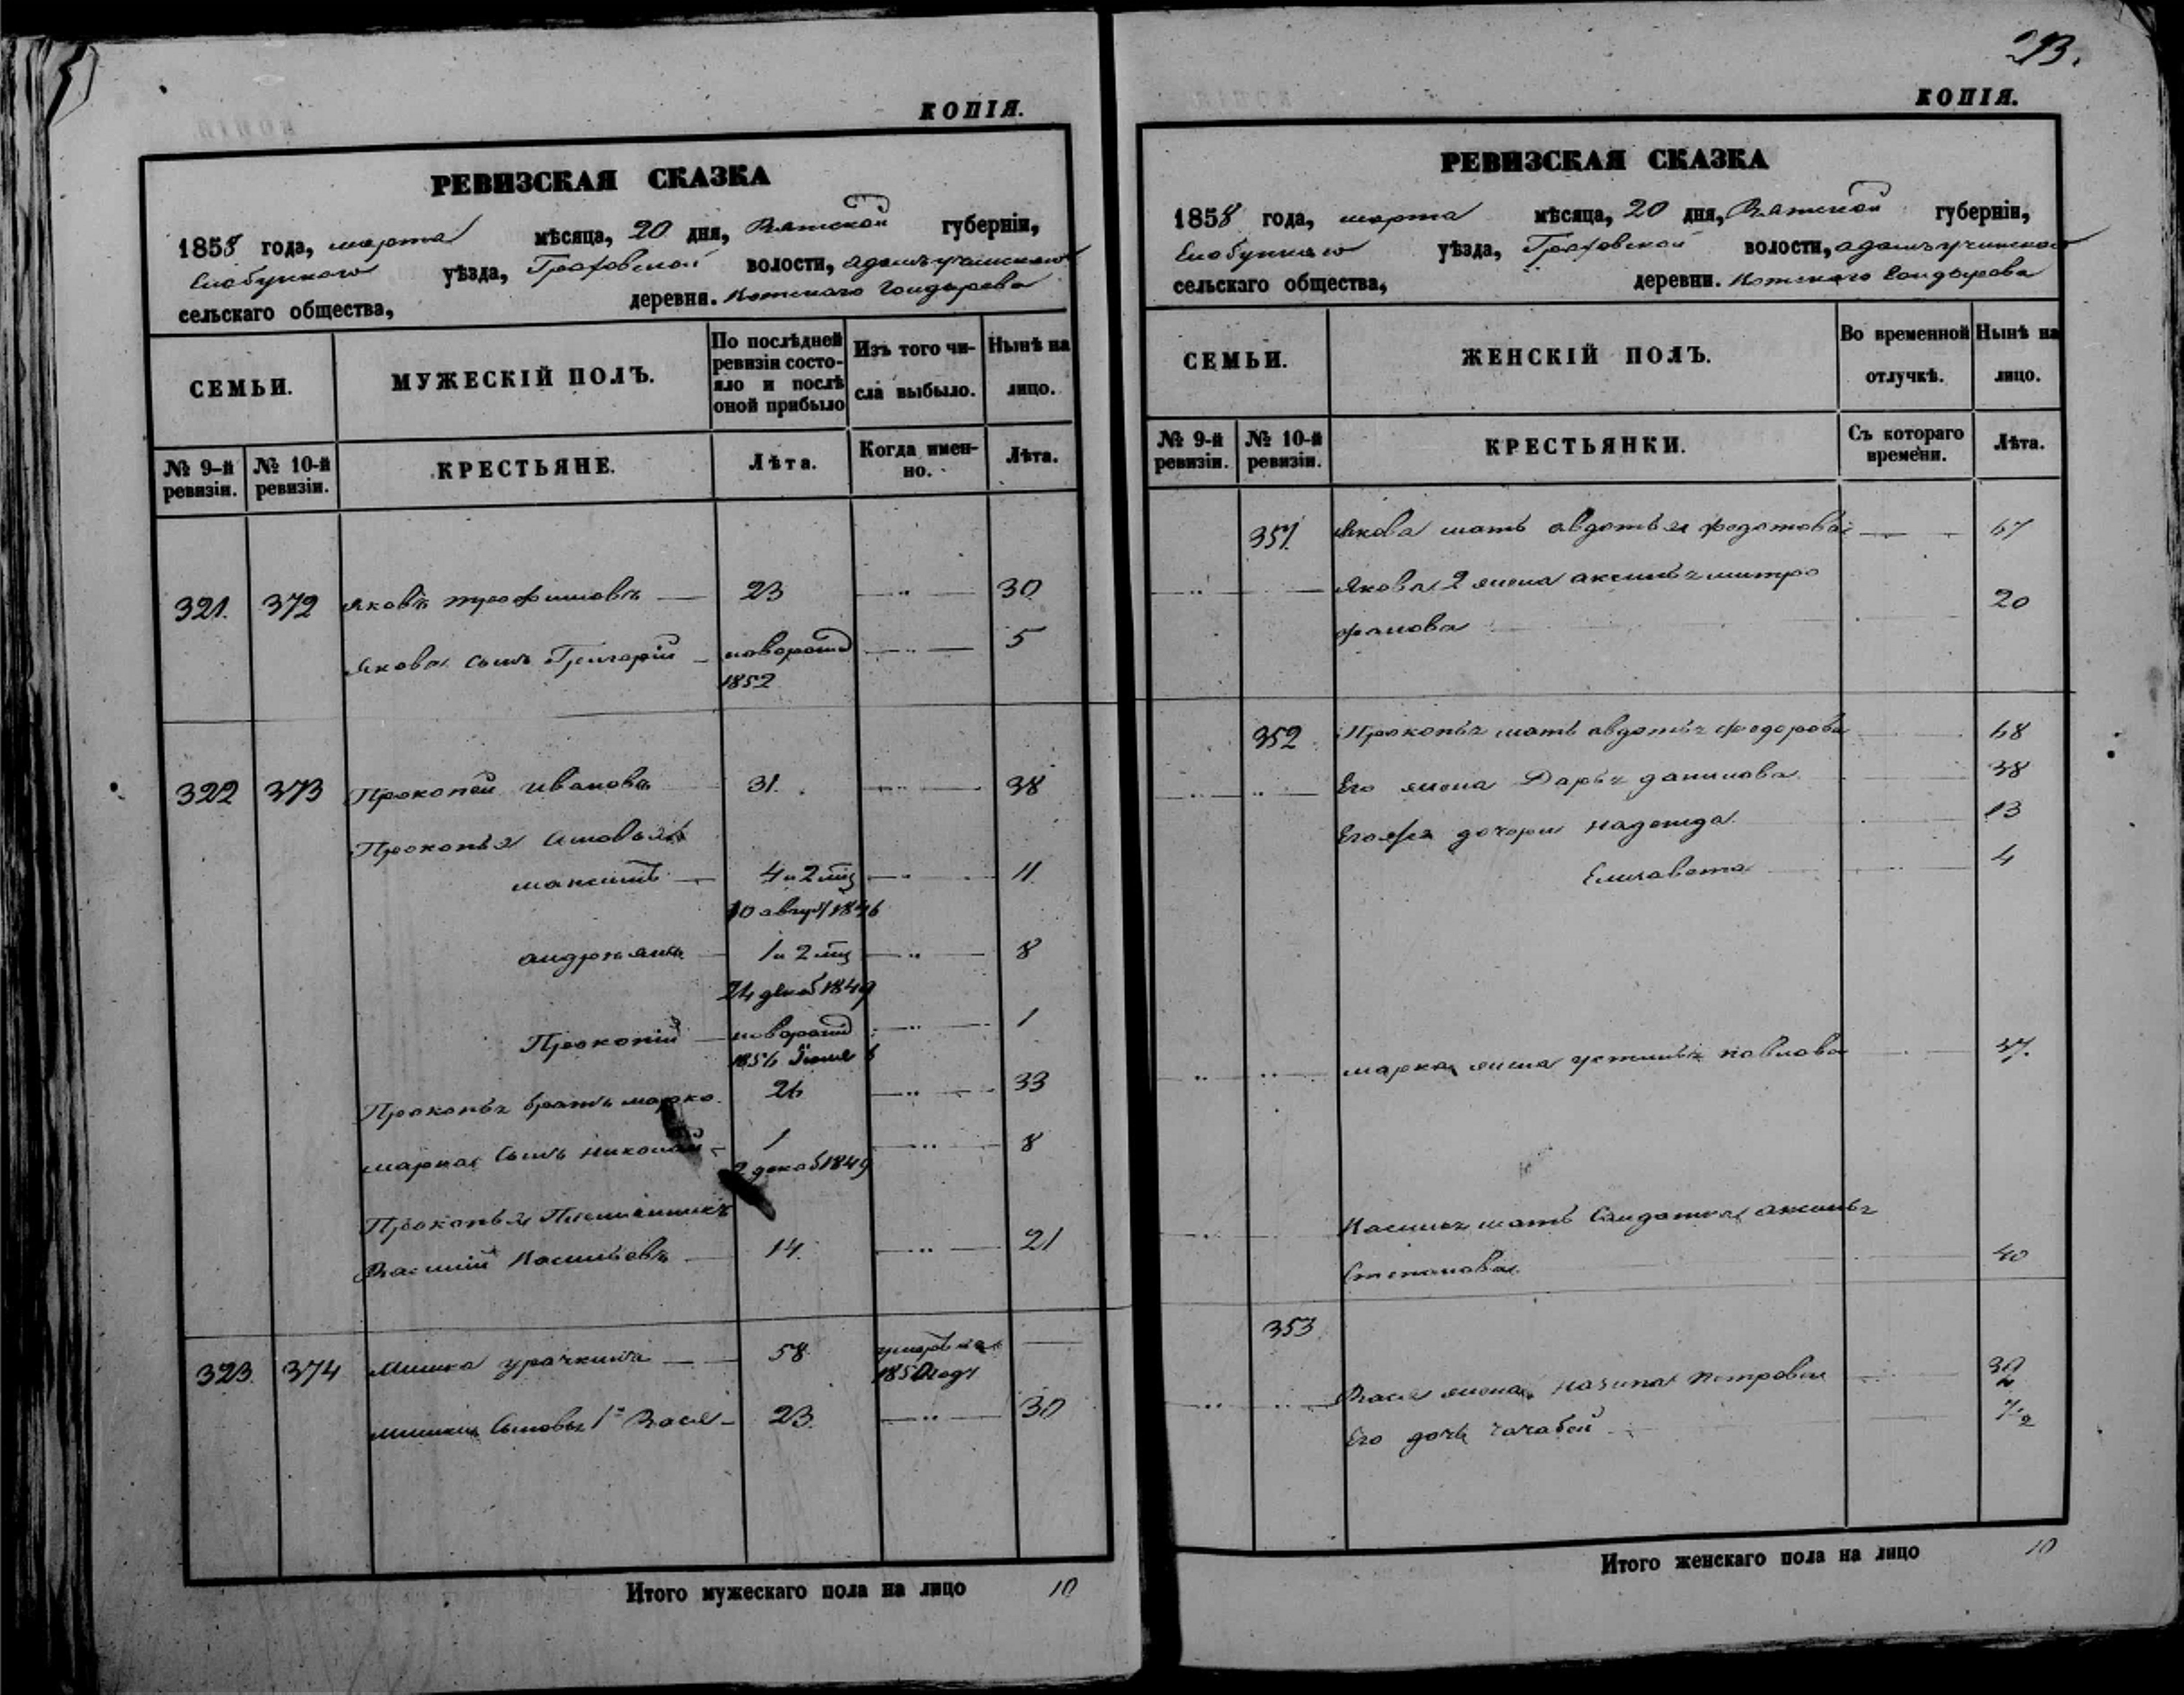 КОПІЯ.
РЕВИЗСКАЯ СКАЗКА
1858 года, марта мѣсяца, 20 дня, Вятской губерніи,
Елабужскаго уѣзда, Граховской волости,
сельскаго общества, деревни.
СЕМЬИ.
МУЖЕСКІЙ ПОЛЪ.
По послѣдней ревизіи состояло и послѣ оной прибыло
Изъ того числа выбыло.
Нынѣ на лицо.
№ 9-й ревизіи.
№ 10-й ревизіи.
КРЕСТЬЯНЕ.
Лѣта.
Когда именно.
Лѣта.
321. 372 Яковъ Трофимовъ 23 30
Якова сынъ Григорій новорожд 5
1852
322 373 Прокопей Ивановъ 31. 38
Прокопья сыновья
Максимъ 4 и 2 мц 11
10 август 1846
Андреянъ 1 и 2 мц 8
24 декаб 1849
Прокопій новорожд 1
1856 Іюля 6
Прокопья братъ Марко 26 33
Марка сынъ Николай 1 8
2 декаб 1849
Прокопья племянникъ
Василій 14. 21
323. 374 58
1850 году
сыновья 1й Вася 23. 30
Итого мужескаго пола на лицо 10
293.
КОПІЯ.
РЕВИЗСКАЯ СКАЗКА
1858 года, марта мѣсяца, 20 дня, Вятской губерніи,
Елабужскаго уѣзда, Граховской волости,
сельскаго общества, деревни.
СЕМЬИ.
ЖЕНСКІЙ ПОЛЪ.
Во временной отлучкѣ.
Нынѣ на лицо.
№ 9-й ревизіи.
№ 10-й ревизіи.
КРЕСТЬЯНКИ.
Съ котораго времени.
Лѣта.
351. Якова мать Авдотья Федотова 67
Якова 2 жена Аксинья Митро
фанова 20
352 Прокопья мать Авдотья Федорова 68
Его жена Дарья Данилова 38
дочери Надежда 13
Елизавета 4
Марка жена Устинья Павлова 37.
мать Солдатка Аксинья
Степанова 40
353
Вася жена Петрова 32
Его дочь
Итого женскаго пола на лицо 10